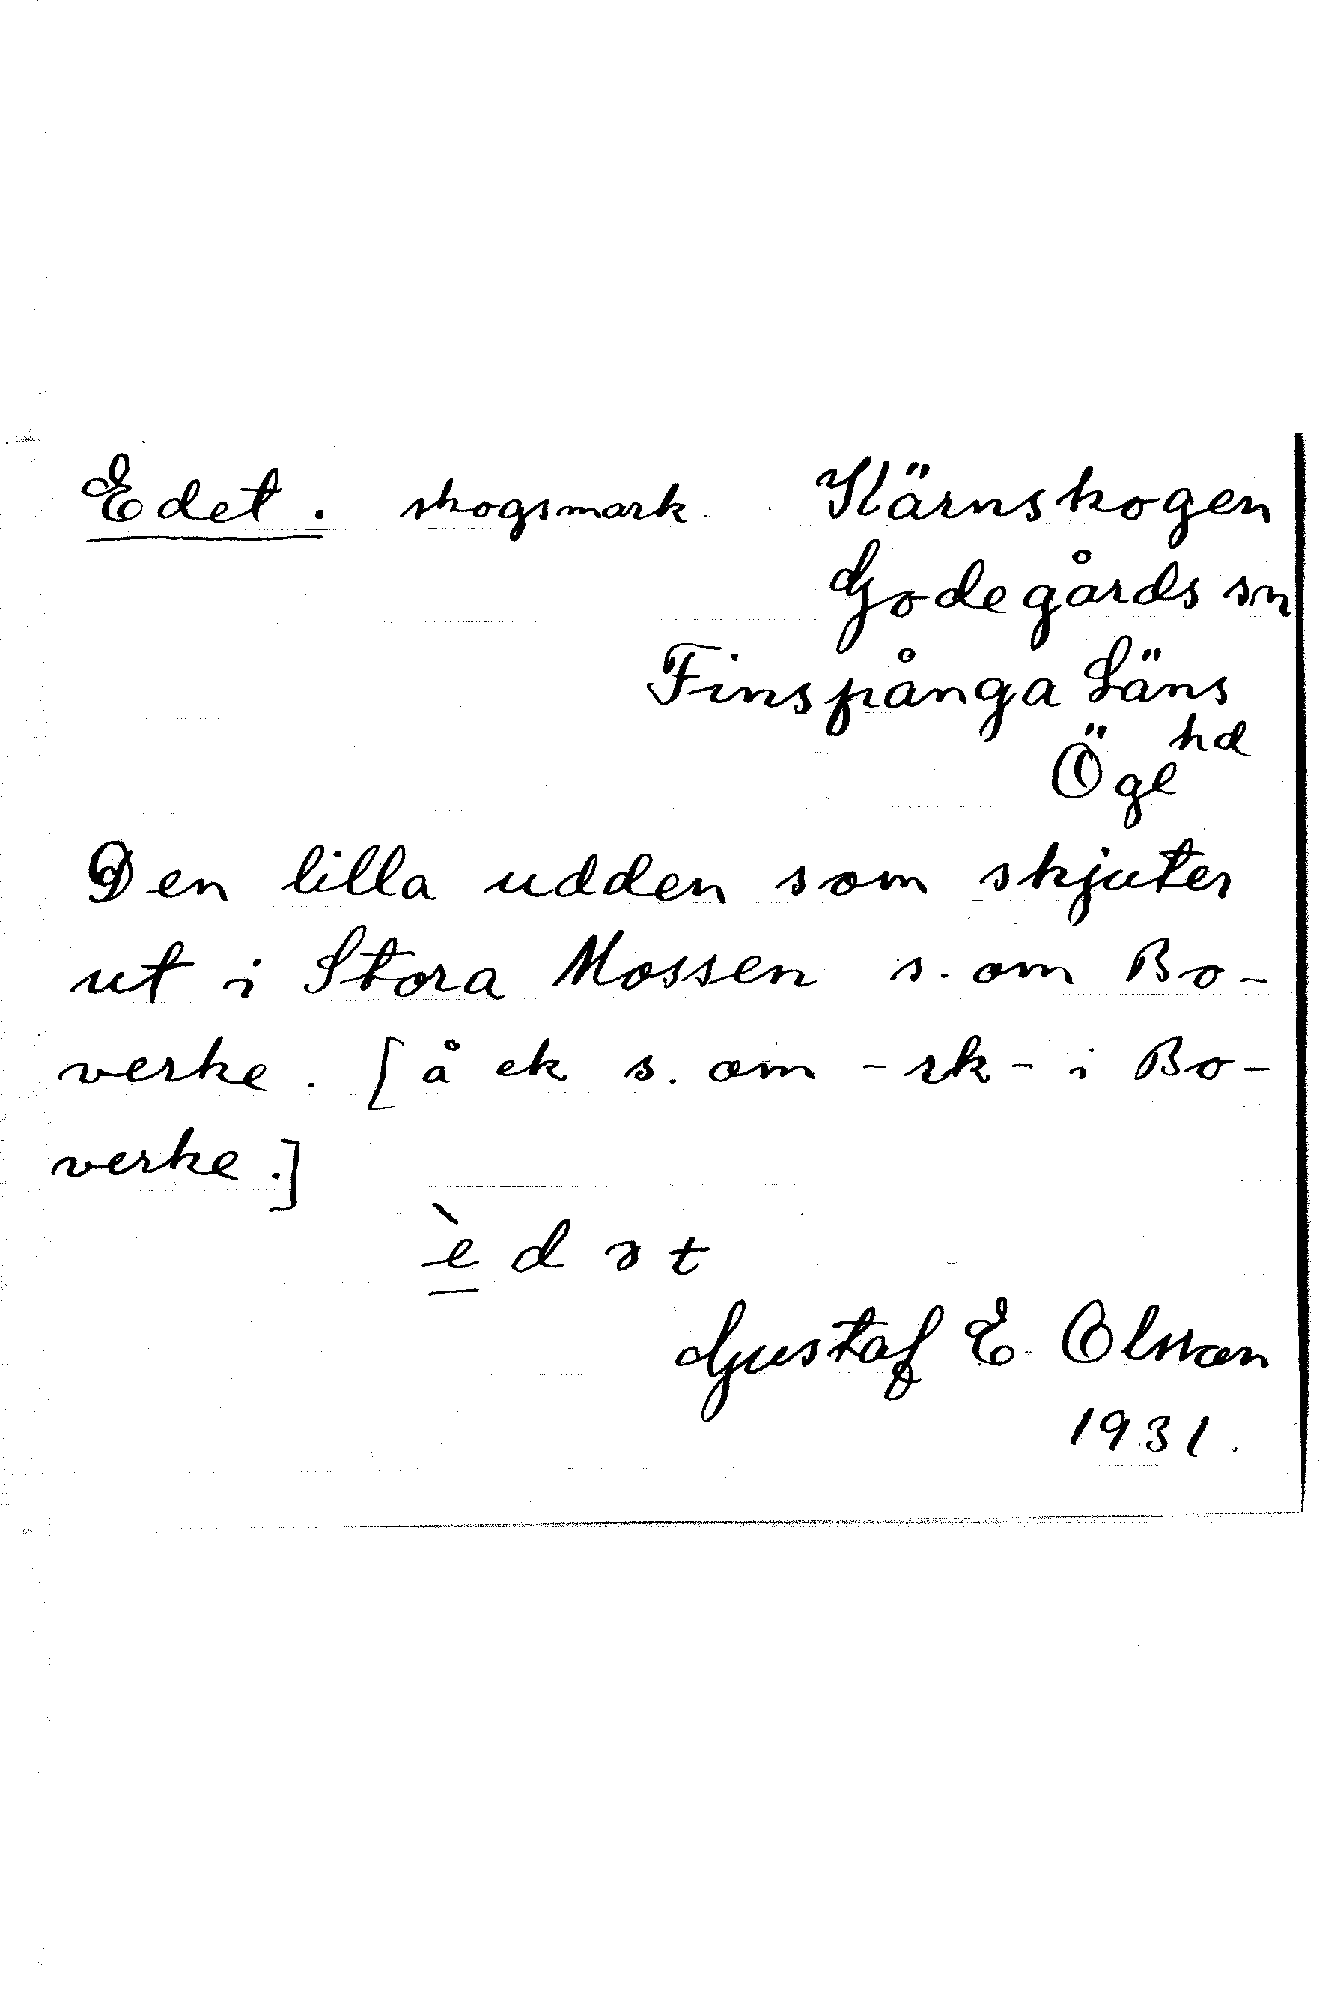 Edet. skogsmark. Kärnskogen
Godegårds sn
Finspånga Läns
hd
Ögl
Den lilla udden som skjuter
ut i Stora Mossen s. om Bo-
verke. [å ek s. om -rk- i Bo-
verke.]
è d ə t
Gustaf E. Olsson
1931.